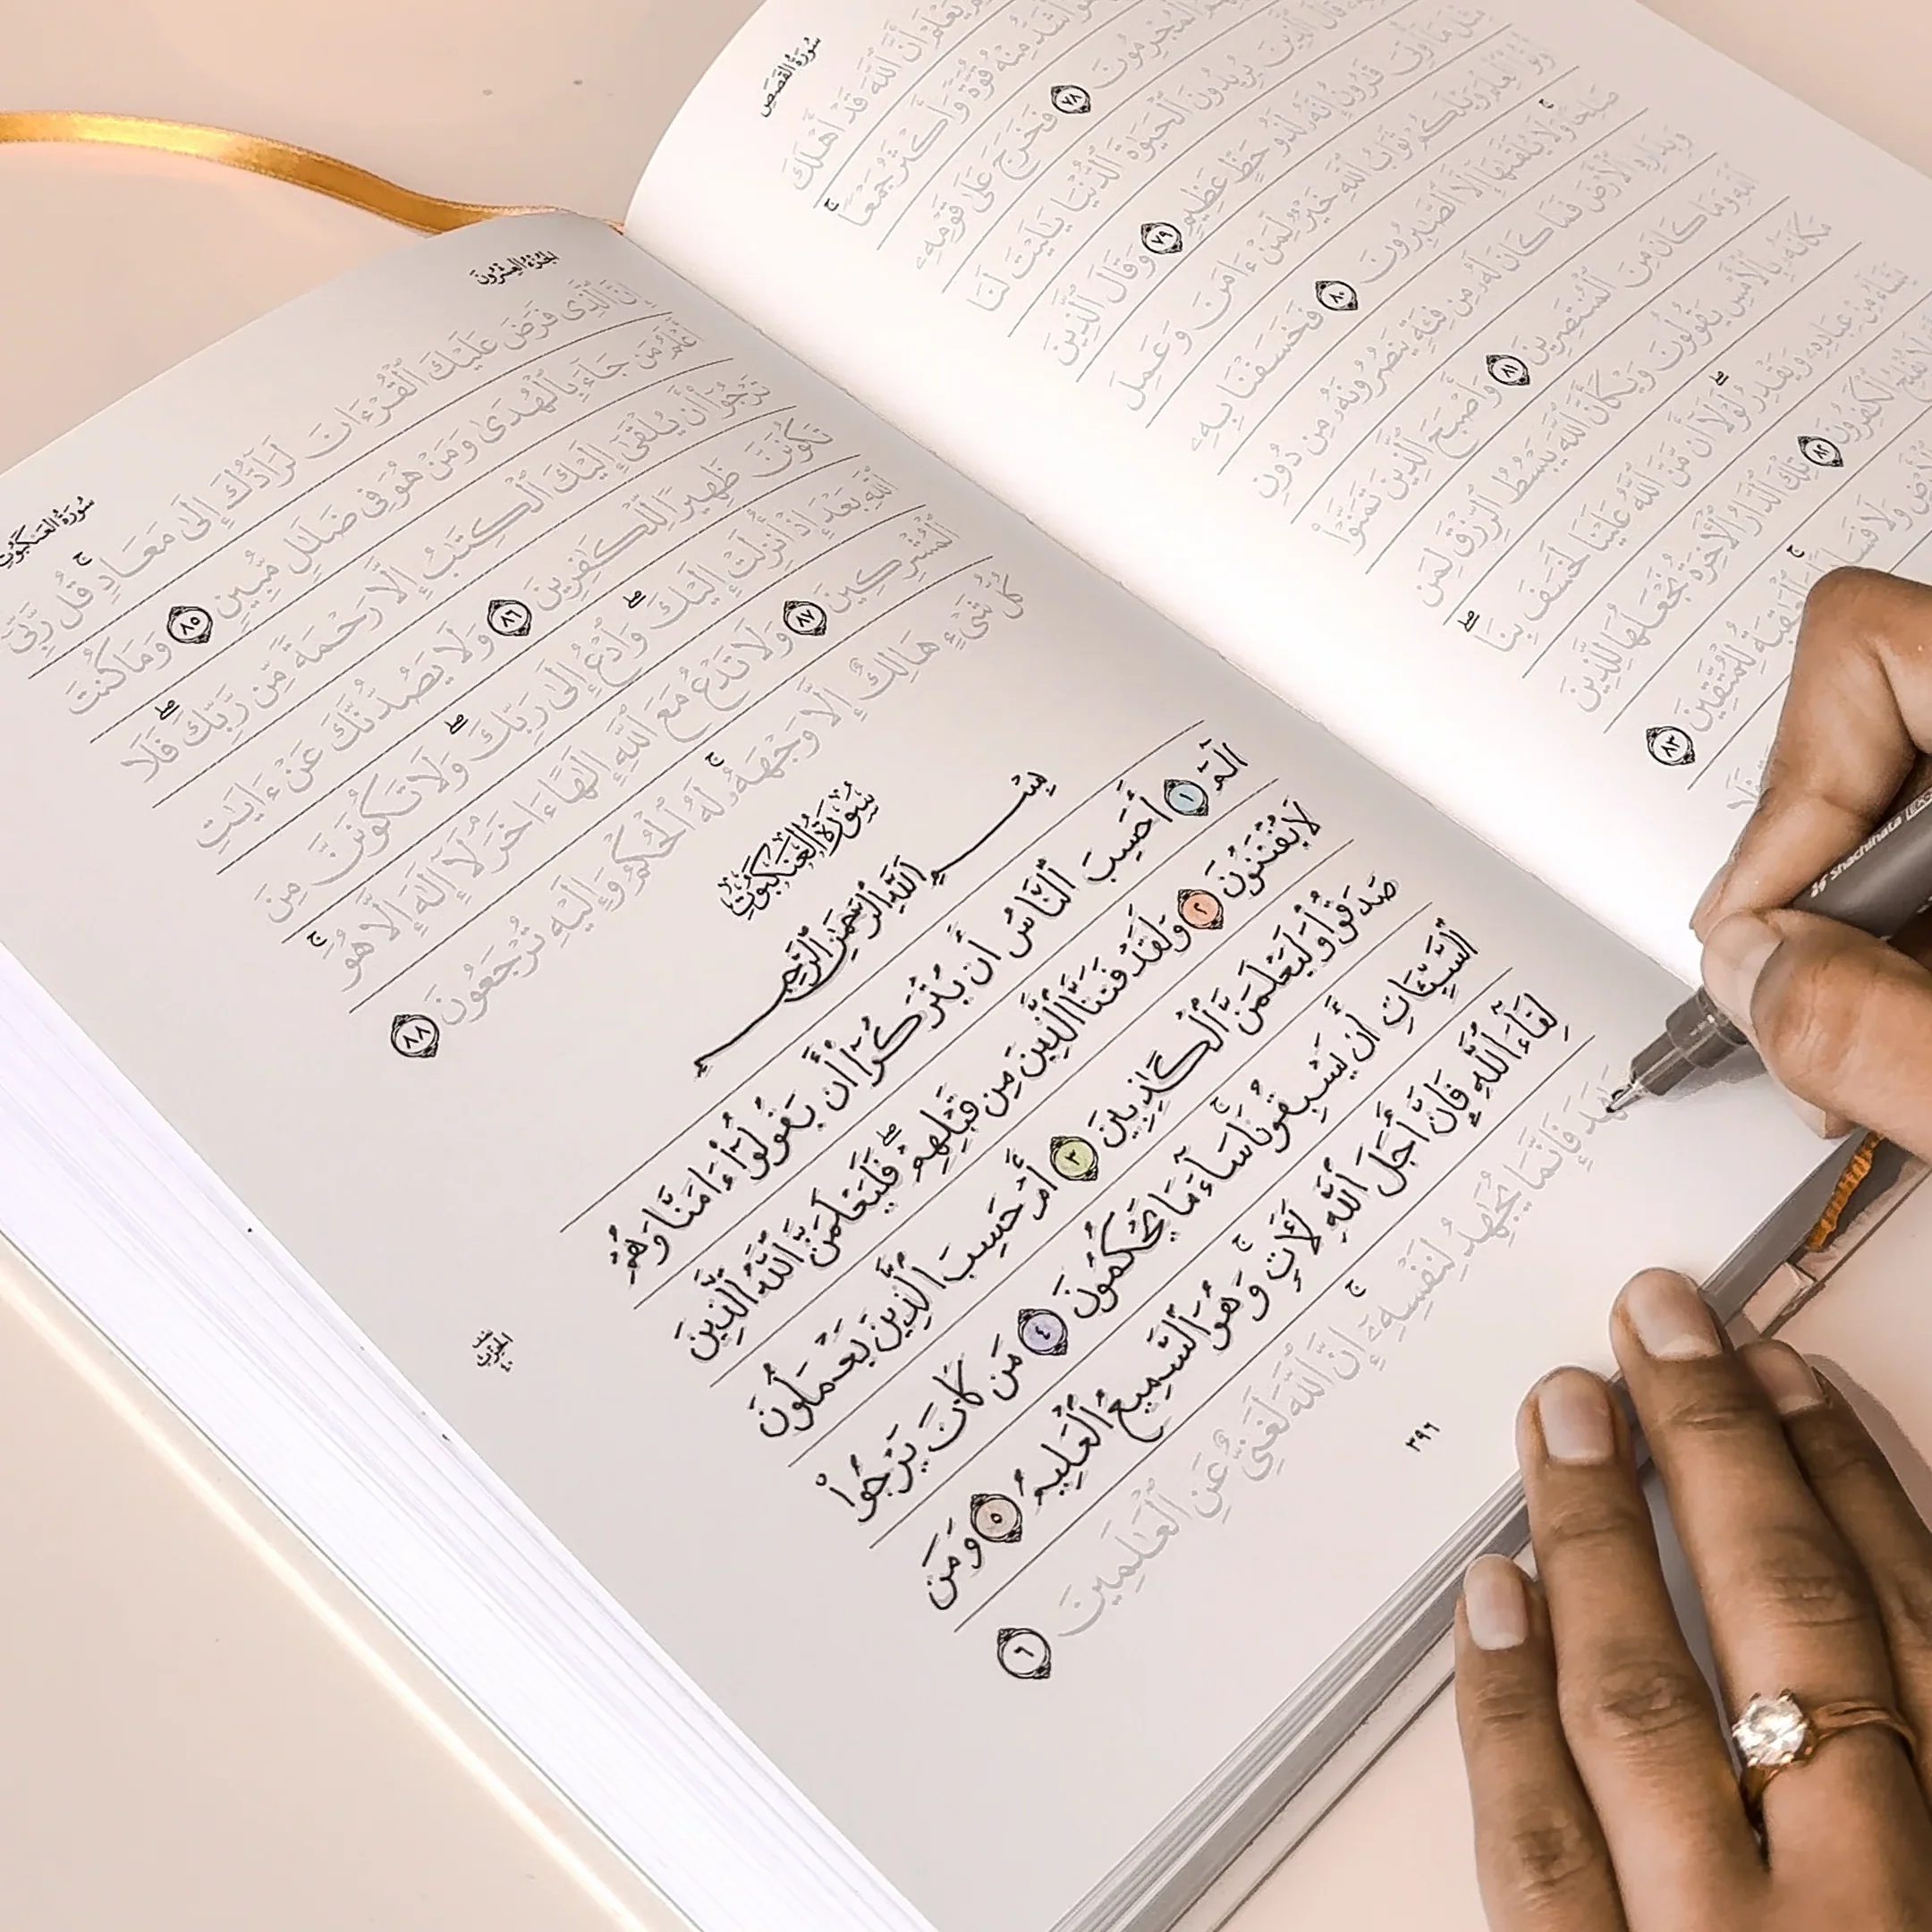 سُورَةُ القَصَصِ
قَدْ أَهْلَكَ
وَأَكْثَرُ جَمْعًا ۚ
الْمُجْرِمُونَ ٧٨ فَخَرَجَ عَلَىٰ قَوْمِهِۦ
قَالَ ٱلَّذِينَ يُرِيدُونَ ٱلْحَيَوٰةَ ٱلدُّنْيَا يَٰلَيْتَ لَنَا
مِثْلَ مَآ أُوتِىَ قَٰرُونُ إِنَّهُۥ لَذُو حَظٍّ عَظِيمٍ ٧٩ وَقَالَ ٱلَّذِينَ
أُوتُوا۟ ٱلْعِلْمَ وَيْلَكُمْ ثَوَابُ ٱللَّهِ خَيْرٌ لِّمَنْ ءَامَنَ وَعَمِلَ
صَٰلِحًا ۚ وَلَا يُلَقَّىٰهَآ إِلَّا ٱلصَّٰبِرُونَ ٨٠ فَخَسَفْنَا بِهِۦ
وَبِدَارِهِ ٱلْأَرْضَ فَمَا كَانَ لَهُۥ مِن فِئَةٍ يَنصُرُونَهُۥ مِن دُونِ
ٱللَّهِ وَمَا كَانَ مِنَ ٱلْمُنتَصِرِينَ ٨١ وَأَصْبَحَ ٱلَّذِينَ تَمَنَّوْا۟
مَكَانَهُۥ بِٱلْأَمْسِ يَقُولُونَ وَيْكَأَنَّ ٱللَّهَ يَبْسُطُ ٱلرِّزْقَ لِمَن
يَشَآءُ مِنْ عِبَادِهِۦ وَيَقْدِرُ ۖ لَوْلَآ أَن مَّنَّ ٱللَّهُ عَلَيْنَا لَخَسَفَ بِنَا ۖ
لَا يُفْلِحُ ٱلْكَٰفِرُونَ ٨٢ تِلْكَ ٱلدَّارُ ٱلْءَاخِرَةُ نَجْعَلُهَا لِلَّذِينَ
وَلَا فَسَادًا ۚ وَٱلْعَٰقِبَةُ لِلْمُتَّقِينَ ٨٣
الجُزْءُ العِشْرُونَ
سُورَةُ العَنكَبُوتِ
إِنَّ ٱلَّذِى فَرَضَ عَلَيْكَ ٱلْقُرْءَانَ لَرَآدُّكَ إِلَىٰ مَعَادٍ ۚ قُل رَّبِّىٓ
أَعْلَمُ مَن جَآءَ بِٱلْهُدَىٰ وَمَنْ هُوَ فِى ضَلَٰلٍ مُّبِينٍ ٨٥ وَمَا كُنتَ
تَرْجُوٓا۟ أَن يُلْقَىٰٓ إِلَيْكَ ٱلْكِتَٰبُ إِلَّا رَحْمَةً مِّن رَّبِّكَ ۖ فَلَا
تَكُونَنَّ ظَهِيرًا لِّلْكَٰفِرِينَ ٨٦ وَلَا يَصُدُّنَّكَ عَنْ ءَايَٰتِ
ٱللَّهِ بَعْدَ إِذْ أُنزِلَتْ إِلَيْكَ ۖ وَٱدْعُ إِلَىٰ رَبِّكَ ۖ وَلَا تَكُونَنَّ مِنَ
ٱلْمُشْرِكِينَ ٨٧ وَلَا تَدْعُ مَعَ ٱللَّهِ إِلَٰهًا ءَاخَرَ ۘ لَآ إِلَٰهَ إِلَّا هُوَ ۚ
كُلُّ شَىْءٍ هَالِكٌ إِلَّا وَجْهَهُۥ ۚ لَهُ ٱلْحُكْمُ وَإِلَيْهِ تُرْجَعُونَ ٨٨
سُورَةُ العَنكَبُوتِ
بِسْمِ ٱللَّهِ ٱلرَّحْمَٰنِ ٱلرَّحِيمِ
الٓمٓ ١ أَحَسِبَ ٱلنَّاسُ أَن يُتْرَكُوٓا۟ أَن يَقُولُوٓا۟ ءَامَنَّا وَهُمْ
لَا يُفْتَنُونَ ٢ وَلَقَدْ فَتَنَّا ٱلَّذِينَ مِن قَبْلِهِمْ ۖ فَلَيَعْلَمَنَّ ٱللَّهُ ٱلَّذِينَ
صَدَقُوا۟ وَلَيَعْلَمَنَّ ٱلْكَٰذِبِينَ ٣ أَمْ حَسِبَ ٱلَّذِينَ يَعْمَلُونَ
ٱلسَّيِّـَٔاتِ أَن يَسْبِقُونَا ۚ سَآءَ مَا يَحْكُمُونَ ٤ مَن كَانَ يَرْجُوا۟
لِقَآءَ ٱللَّهِ فَإِنَّ أَجَلَ ٱللَّهِ لَءَاتٍ ۚ وَهُوَ ٱلسَّمِيعُ ٱلْعَلِيمُ ٥ وَمَن
جَٰهَدَ فَإِنَّمَا يُجَٰهِدُ لِنَفْسِهِۦٓ ۚ إِنَّ ٱللَّهَ لَغَنِىٌّ عَنِ ٱلْعَٰلَمِينَ ٦
الحِزْب
٤٠
٣٩٦
Shachihata